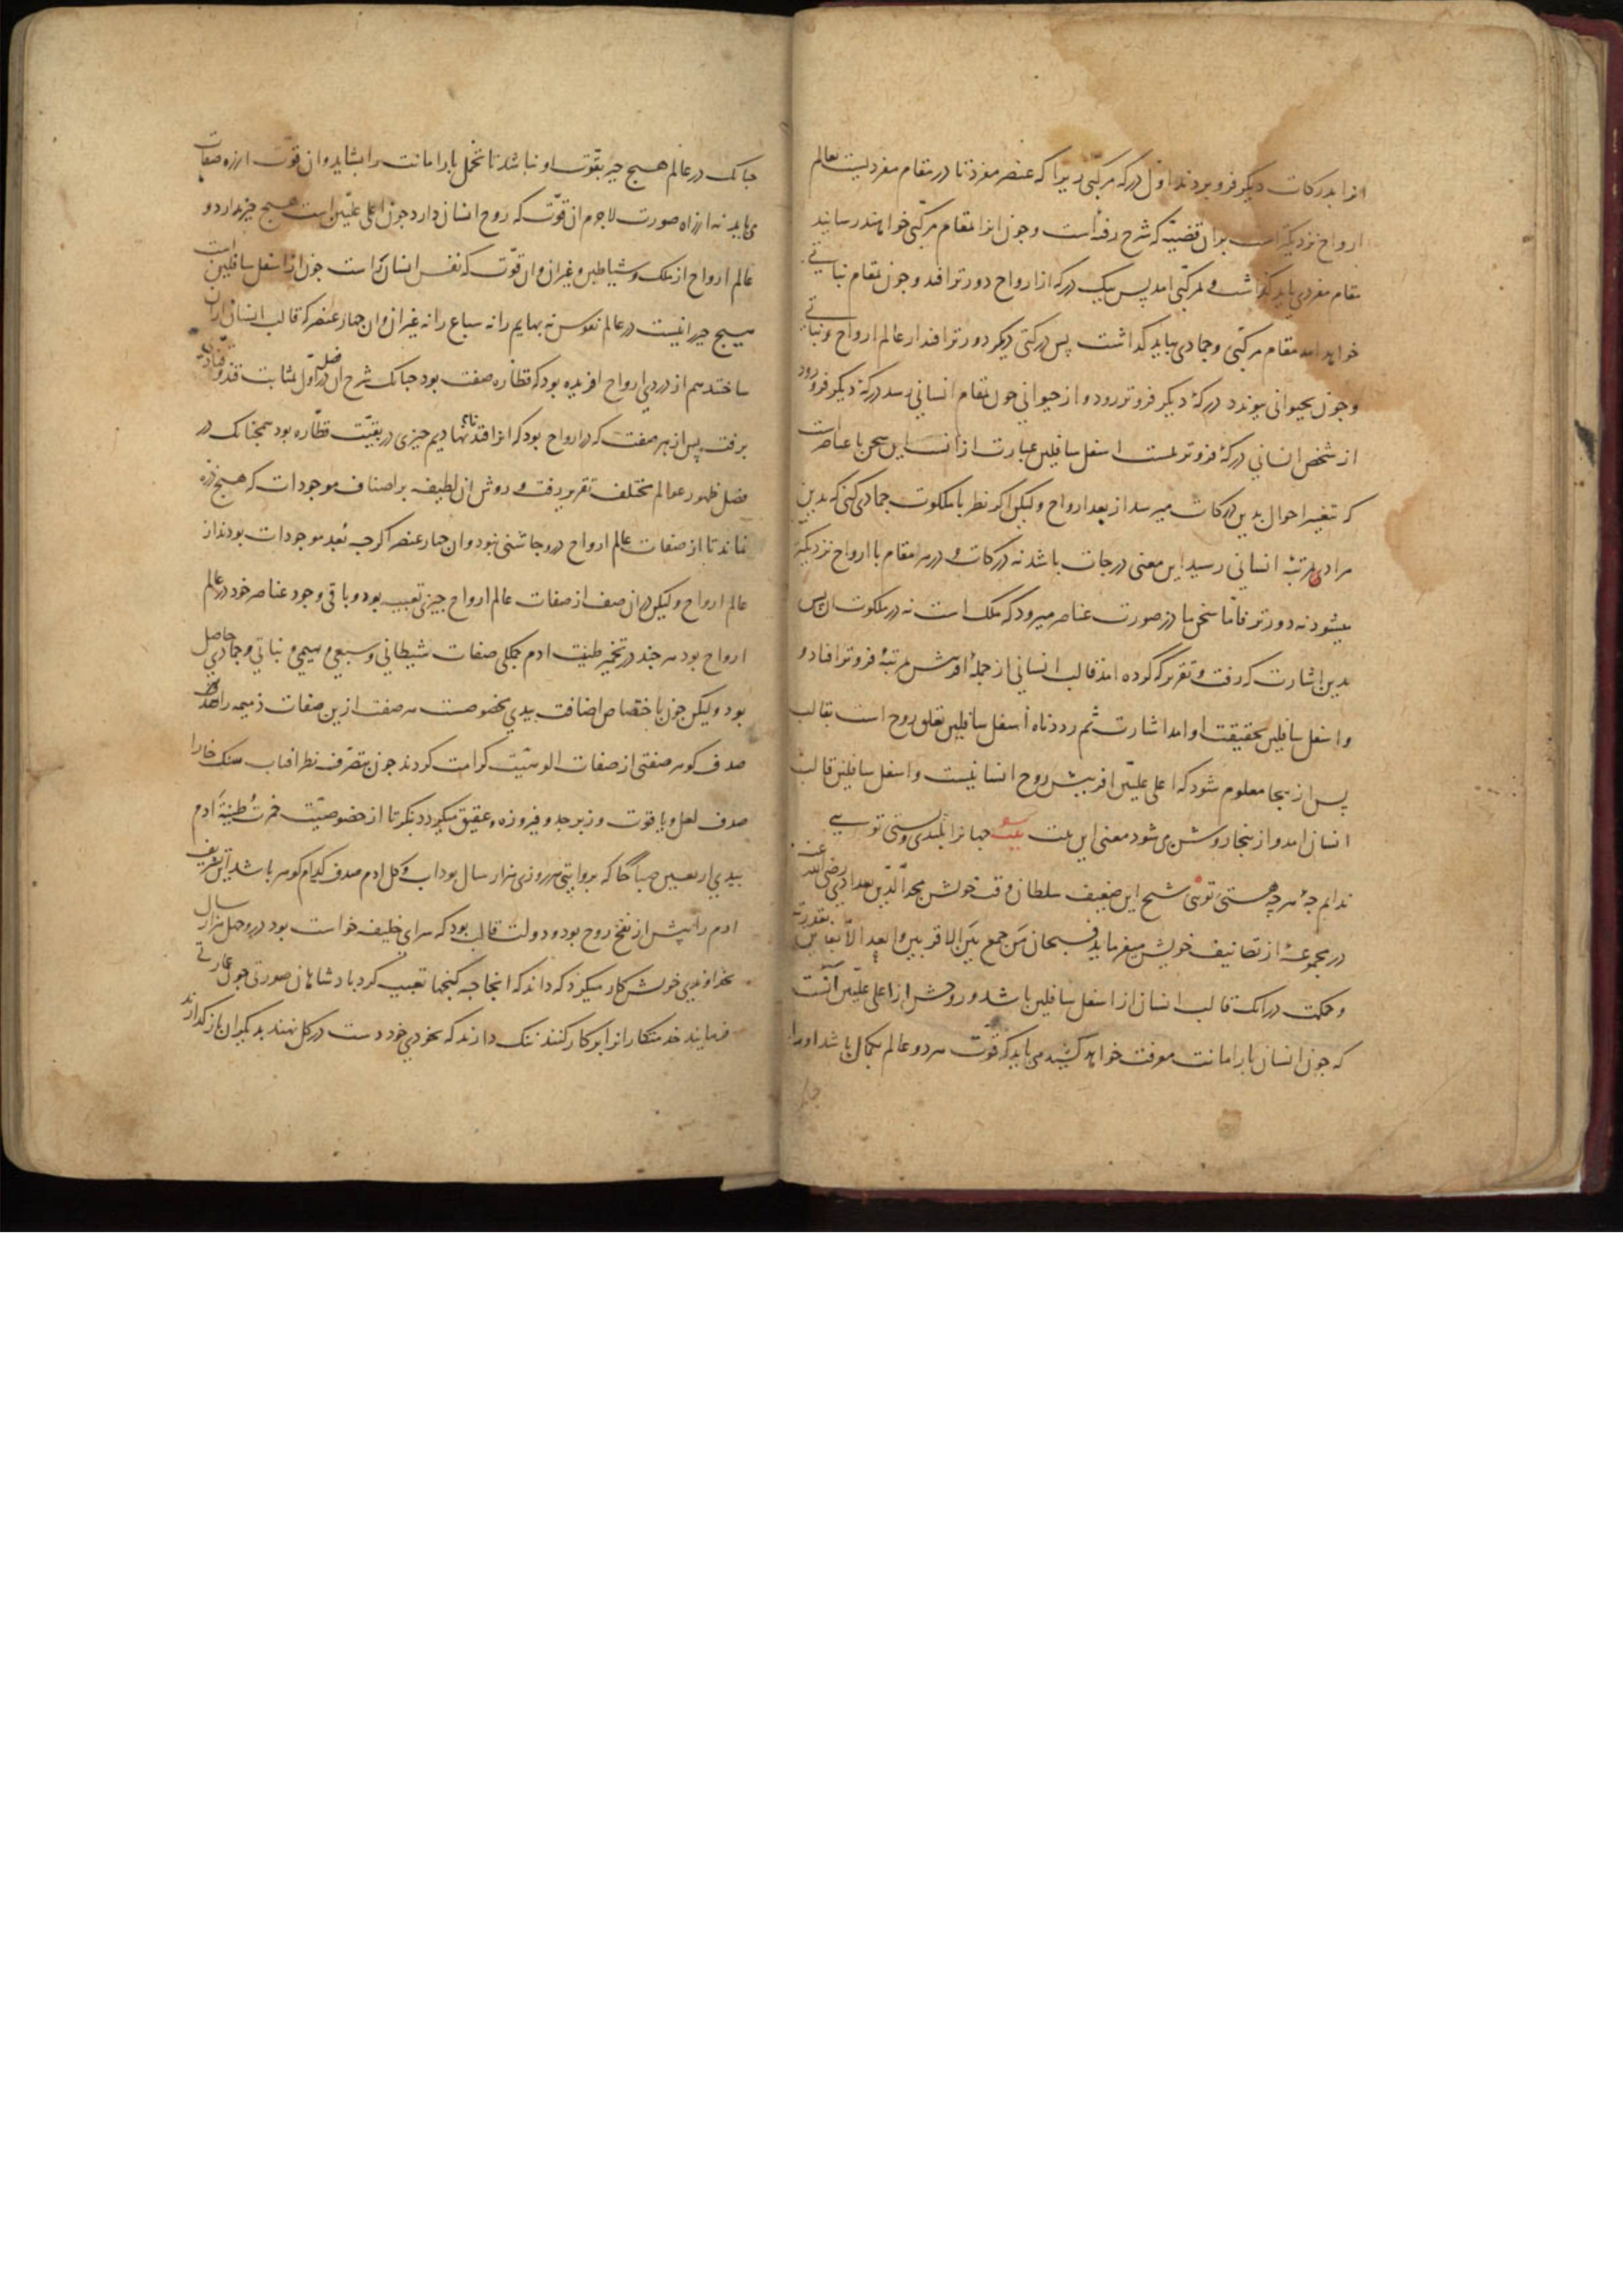 انرا بدرکات دیگر فرو بردند اول درکه مرکبی زیرا که عنصر مفرد تا در مقام مفردیست بعالم
ارواح نزدیکتر است بدان قضیه که شرح رفته است و جون انرا بمقام مرکبی خواهند رسانید
مقام مفردی بباید گذاشت و بمرکبی امد پس بیک درکه از ارواح دورتر افتد و جون بمقام نباتی
خواهد امد مقام مرکبی و جمادی بباید گذاشت پس درکتی دیگر دورتر افتد از عالم ارواح و نباتی
و جون بحیوانی پیوندد درکهٔ دیگر فروتر رود و از حیوانی جون بمقام انسانی رسد درکهٔ دیگر فرو رود
از شخص انسانی درکهٔ فروتر نیست اسفل سافلین عبارت ازانست این سخن با عناصرست
که تغییر احوال بدین درکات میرسد از بعد ارواح ولیکن اکر نظر با ملکوت جمادی کنی که بدین
مراد مرتبهٔ انسانی رسید این معنی درجات باشد نه درکات و در هر مقام با ارواح نزدیکتر
میشود نه دورتر فاما سخن ما در صورت عناصر میرود که ملک است نه در ملکوت ان پس
بدین اشارت که رفت و تقریر که کرده امد قالب انسانی از جملهٔ افرینش مرتبهٔ فروتر افتاد و
و اسفل سافلین بحقیقت او امد اشارت ثم رددناه أسفل سافلین تعلق روح است بقالب
پس از ینجا معلوم شود که اعلی علیین افرینش روح انسانیست و اسفل سافلین قالب
انسان امد و از ینجا روشن می شود معنی این بیت بیت جهانرا بلندی و پستی تویی
ندانم جهٔ هر چه هستی تویی شیخ این ضعیف سلطان وقت خویش مجد الدین بغدادی رضی الله عنه
در مجموعهٔ از تصانیف خویش میفرماید فسبحان من جمع بین اقرب الاقربین و ابعد الابعدین بقدرته
و حکمت درانک قالب انسان از اسفل سافلین باشد و روحش از اعلی علیین انست
که جون انسان بار امانت معرفت خواهد کشید می باید که قوت هر دو عالم بکمال باشد او را
جنانک در عالم هیج جیز بقوت او نباشد تا تحمل بار امانت را بشاید و ان قوت از راه صفات
می باید نه از راه صورت لاجرم ان قوت که روح انسان دارد جون از اعلی علیین است هیج جیز ندارد در
عالم ارواح از ملک و شیاطین و غیر ان و ان قوت که نفس انسان راست جون از اسفل سافلین است
هیج جیز را نیست در عالم نفوس نه بهایم را نه سباع را نه غیر ان و ان جهار عنصر که قالب انسانی ازان
ساختند هم از دردی ارواح افریده بود که قطاره صفت بود جنانک شرح ان در فصل اول بمثابت قند و قنادی
برفت پس از هر صفت که در ارواح بود که انرا قند نام نهادیم جیزی در بقیت قطاره بود همجنانک در
فصل ظهور عوالم مختلف تقریر رفت و روش ان لطیفه بر اصناف موجودات که هیج ذره
نماند تا از صفات عالم ارواح درو جاشنی نبود و ان جهار عنصر اکرجه بعد موجودات بودند از
عالم ارواح ولیکن در ان صف از صفات عالم ارواح جیزی تعبیه بود و باقی وجود عناصر خود در عالم
ارواح بود هر جند در تخمیر طینت ادم جملکی صفات شیطانی و سبعی و بهیمی و نباتی و جمادی حاصل
بود ولیکن جون باختصاص اضافت بیدي مخصوصست هر صفت ازین صفات ذمیمه را
صدف کوهر صفتی از صفات الوهیت کرامت کردند جون بتصرف نظر افتاب سنک خارا
صدف لعل و یاقوت و زبرجد و فیروزه و عقیق میکردد بنکر تا از خصوصیت خمرت طینة آدم
بیدي اربعین صباحا که بروایتی هر روزی هزار سال بود اب و کل ادم صدف کدام کوهر باشد این تشریف
ادم را پیش از نفخ روح بود و دولت قالب بود که سرای خلیفه خواست بود درو جهل هزار سال
بخداوندي خویش کار میکرد که داند که انجا جه کنجها تعبیه کرد بادشاهان صورتی جون عمارتی
فرمایند خدمتکارانرا بر کار کنند ننک دارند که بخودي خود دست در کل نهند بدیکران بازکذارند